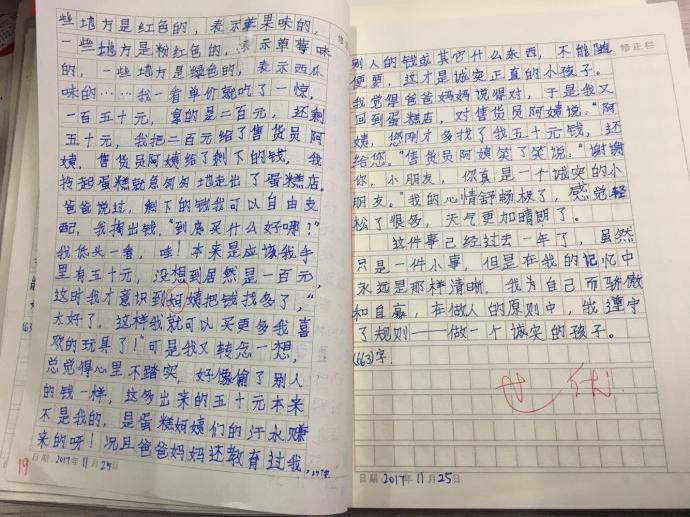 些地方是红色的，表示苹果味的，
一些地方是粉红色的，表示草莓味
的，一些地方是绿色的，表示西瓜
味的……我一看单价就吃了一惊，
一百五十元，拿的是二百元，还剩
五十元，我把二百元给了售货员阿
姨，售货员阿姨给了剩下的钱，我
拎起蛋糕就急匆匆地走出了蛋糕店。
爸爸说过，剩下的钱我可以自由支
配，我掏出钱，“到底买什么好哪？”
我低头一看，哇！本来是应该我手
里有五十元，没想到居然是一百元，
这时我才意识到阿姨把钱找多了，“
太好了，这样我就可以买更多我喜
欢的玩具了！”可是我又转念一想，
总觉得心里不踏实，好像偷了别人
的钱一样，这多出来的五十元本来
不是我的，是蛋糕姐姨们的汗水赚
来的呀！况且爸爸妈妈还教育过我，
19 日期：2017年11月25日
别人的钱或其它什么东西，不能随
便要，这才是诚实正直的小孩子。
我觉得爸爸妈妈说得对，于是我又
回到蛋糕店，对售货员阿姨说：“阿
姨，您刚才多找了我五十元钱，还
给您。”售货员阿姨笑了笑说：“谢谢
你，小朋友，你真是一个诚实的小
朋友。”我的心情舒畅极了，感觉轻
松了很多，天气更加晴朗了。
这件事已经过去一年了，虽然
只是一件小事，但是在我的记忆中
永远是那样清晰，我为自己而骄傲
和自豪，在做人的原则中，我遵守
了规则——做一个诚实的孩子。
(663)字
优
日期：2017年11月25日
修正栏